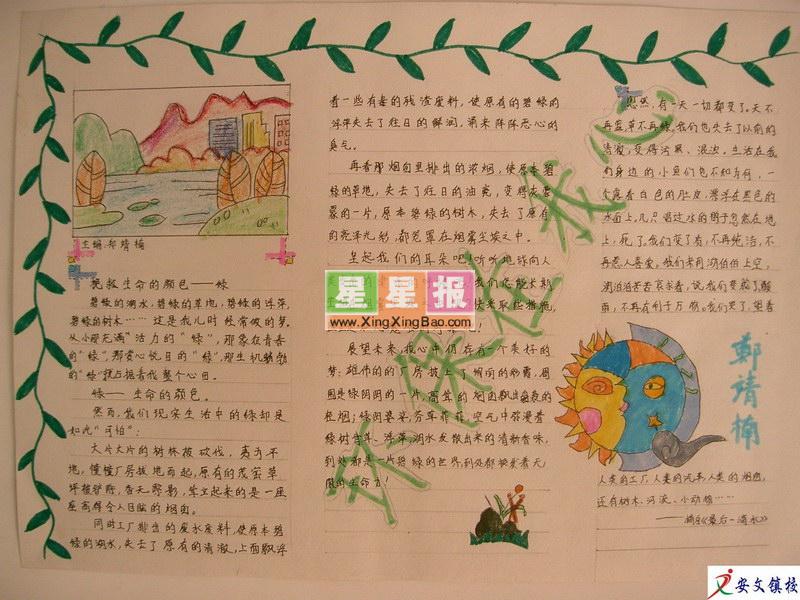 主编:郑靖楠
挽救生命的颜色——绿
碧绿的湖水,碧绿的草地,碧绿的浮萍,
碧绿的树木……这是我儿时经常做的梦。
从小那充满"活力的"绿",那象在青春
的"绿",那赏心悦目的"绿",那生机勃勃
的"绿"就占据着我整个心田。
绿——生命的颜色。
然而,我们现实生活中的绿却是
如此"可怕":
大片大片的树林被砍伐,夷为平
地,幢幢厂房拔地而起,原有的茂密草
坪被铲除,杳无踪影,耸立起来的是一座
座高得令人目眩的烟囱。
同时工厂排出的废水废料,使原本碧
绿的湖水,失去了原有的清澈,上面飘浮
着一些有毒的残渣废料,使原有的碧绿的
浮萍失去了往日的鲜润,前来阵阵恶心的
臭气。
再看那烟囱里排出的浓烟,使原本碧
绿的草地,失去了往日的油亮,变得灰蒙
蒙的一片,原本碧绿的树木,失去了原有
的亮泽光彩,都笼罩在烟雾尘埃之中。
竖起我们的耳朵吧!听听地球向人
星星报
www.XingXingBao.com
展望未来,我心中仍存有一个美好的
梦,雄伟的的厂房披上了绚丽的彩霞,周
围是绿阴阴的一片,高耸的烟囱飘出缕缕的
轻烟;绿阴婆娑,芬草菲菲,空气中弥漫着
绿树青草、浮萍,湖水发散出来的清新香味,
到处都是一片碧绿的世界,到处都焕发着无
限的生命力!
环保在我心
忽然,有一天一切都变了。天不
再蓝,草不再绿。我们也失去了以前的
清澈,变得污黑、混浊。生活在我
们身边的小鱼们也不知为何,一
个露着白色的肚皮,漂浮在黑色的
水面上,几只喝过水的鸭子忽然在地
上,死了。我们变了,不再纯洁,不
再惹人喜爱。
郑靖楠
人类的工厂,人类的汽车,人类的烟囱,
还有树木、河流、小动物……
——摘自《最后一滴水》
安文镇校